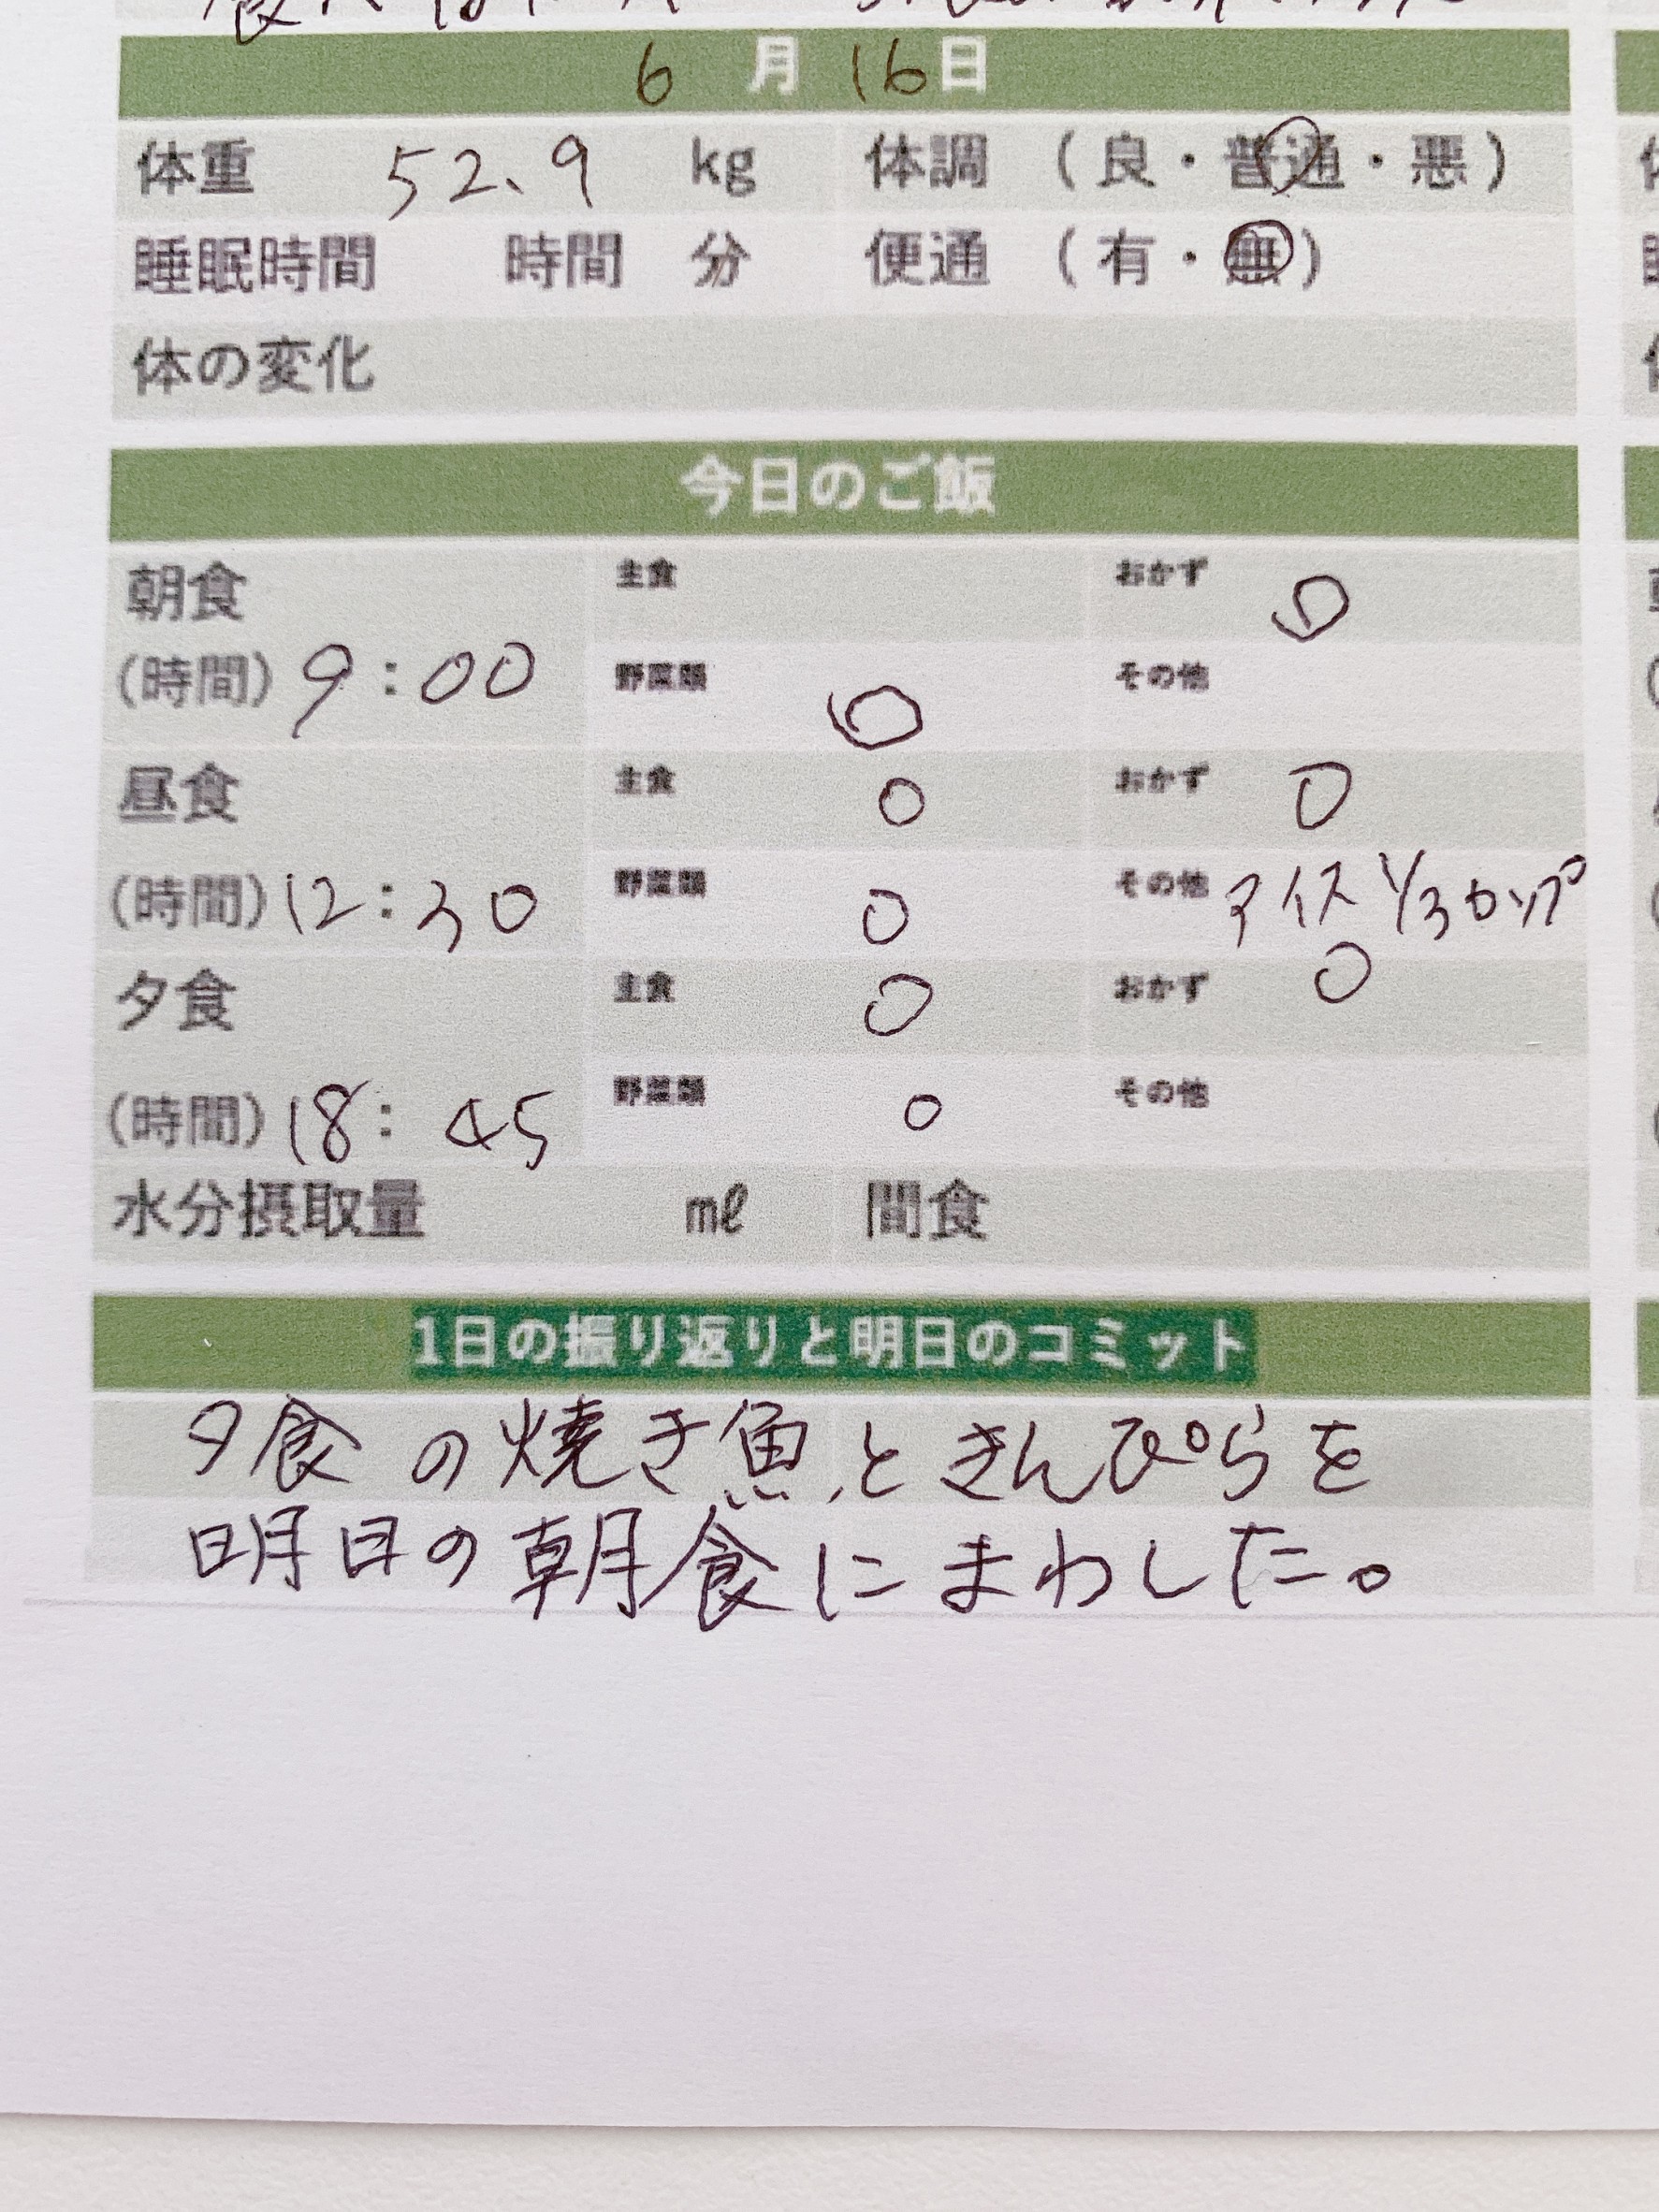 6月16日
体重 52.9 kg 体調 (良・普通・悪)
睡眠時間 時間 分 便通 (有・無)
体の変化
今日のご飯
朝食 主食 おかず ○
(時間) 9:00 野菜類 ○ その他
昼食 主食 ○ おかず ○
(時間) 12:30 野菜類 ○ その他 アイス 1/3カップ
夕食 主食 ○ おかず ○
(時間) 18:45 野菜類 ○ その他
水分摂取量 ml 間食
1日の振り返りと明日のコミット
夕食の焼き魚ときんぴらを
明日の朝食にまわした。